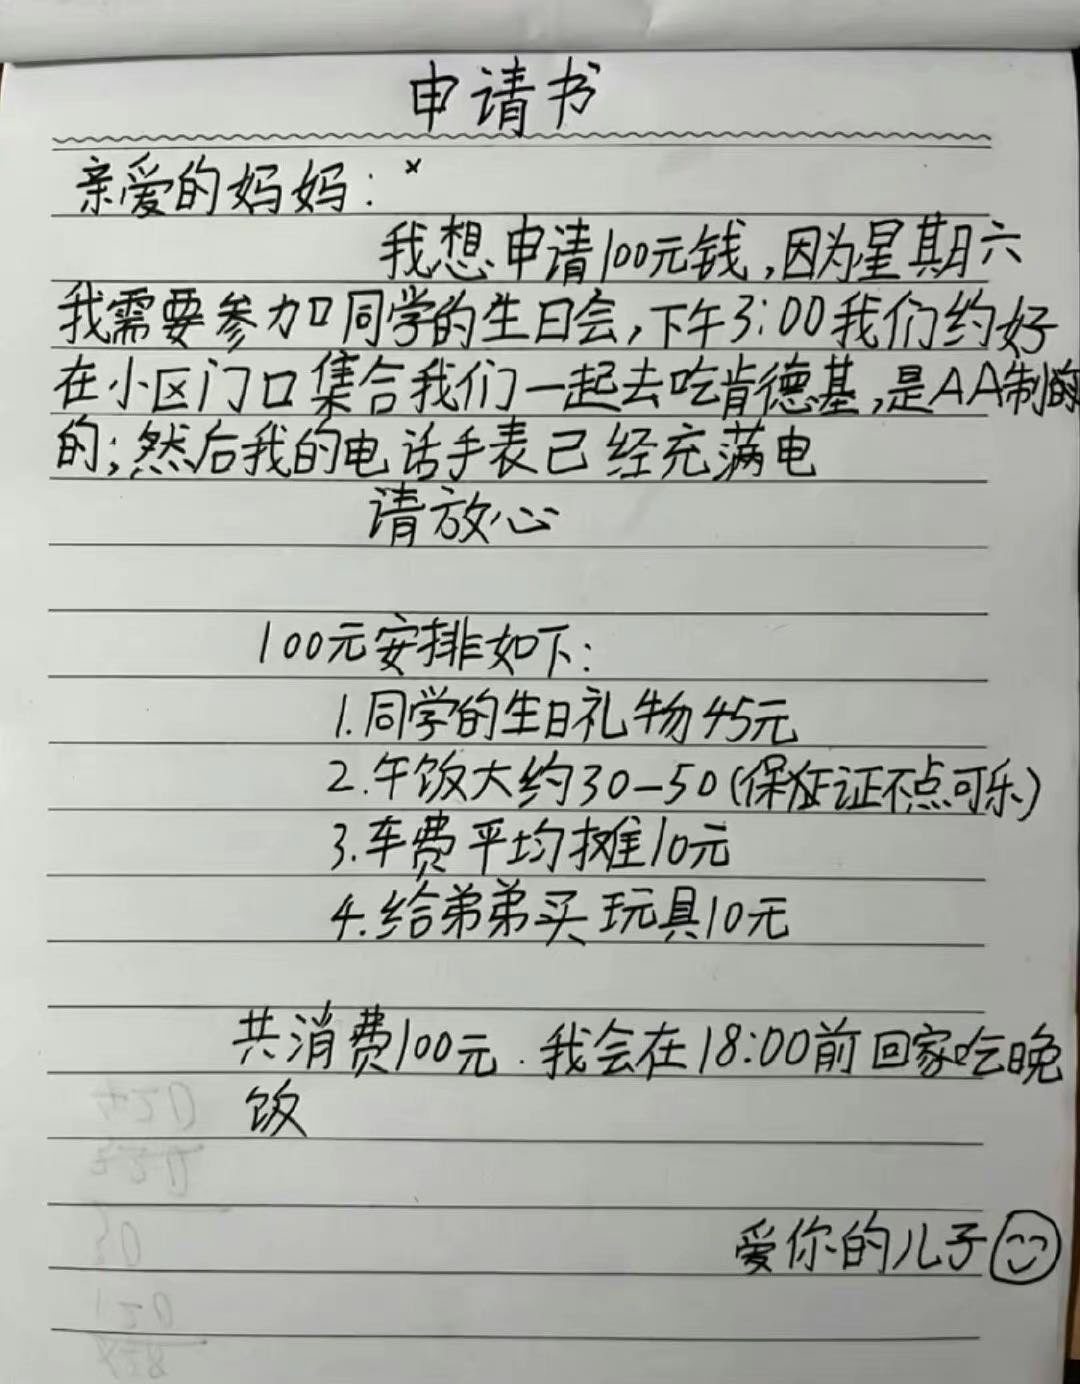 申请书
亲爱的妈妈：
我想申请100元钱,因为星期六
我需要参加同学的生日会,下午3:00我们约好
在小区门口集合我们一起去吃肯德基,是AA制的
的;然后我的电话手表已经充满电
请放心
100元安排如下:
1.同学的生日礼物45元
2.午饭大约30-50(保证证不点可乐)
3.车费平均摊10元
4.给弟弟买玩具10元
共消费100元.我会在18:00前回家吃晚
饭
爱你的儿子